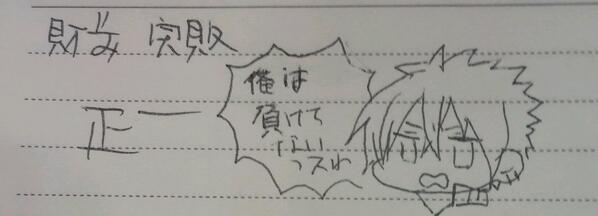 財前 実敗
正一
俺は
負けて
ないっスわ